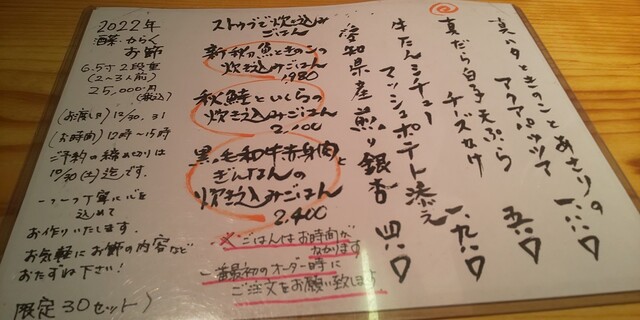 真ハタときのことあさりの
アクアパッツァ 一、八〇〇
真だら白子天ぷら
チーズがけ 一、九五〇
牛たんシチュー
マッシュポテト添え
愛知県産 煎り銀杏 四八〇
ストウブで炊き込み
ごはん
新秋刀魚ときのこの
炊き込みごはん
1980
秋鮭といくらの
炊き込みごはん
2.100
黒毛和牛赤身肉と
ぎんなんの
炊き込みごはん
2.400
※ごはんはお時間が
かかります
一番最初のオーダー時に
ご注文をお願い致します
2022年
酒菜からく
お節
6.5寸2段重
(2〜3人前)
25,000円
(税込)
(お渡し日)12/30、31
(お時間)12時〜15時
ご予約の締め切りは
10/30(土)迄です。
一つ一つ丁寧に心を
込めて
お作りいたします。
お気軽にお節の内容など
おたずね下さい!
限定30セット)